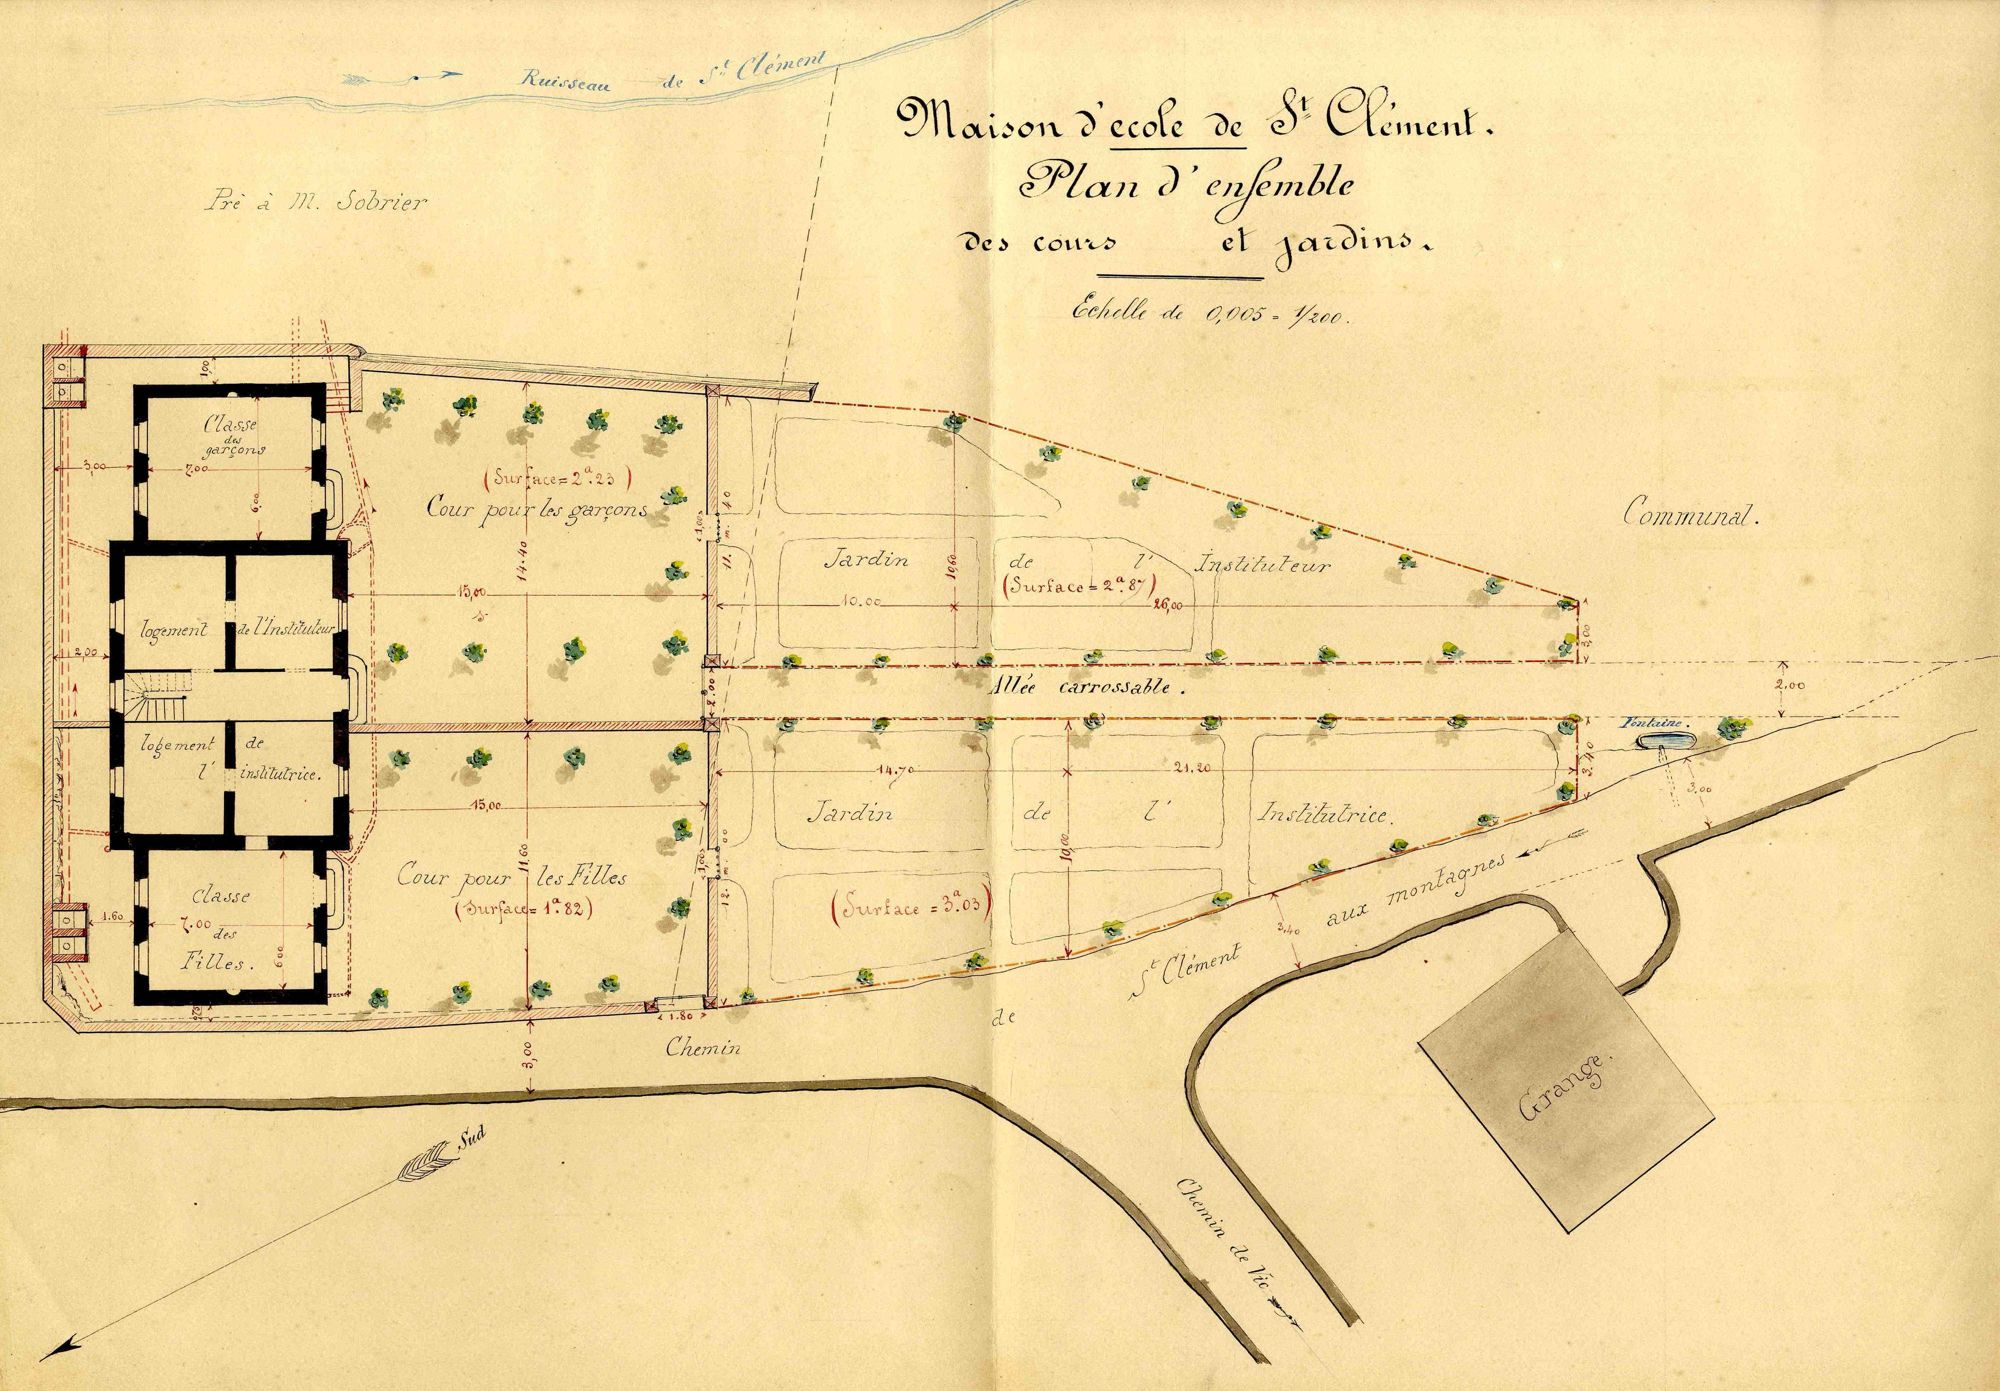 Ruisseau de St Clément
Maison d'ecole de St Clément.
Plan d'ensemble
des cours et jardins.
Echelle de 0,005 = 1/200.
Pré à M. Sobrier
1,00
Classe
des
garçons
3,00
7.00
6.00
(Surface = 2a.23)
Cour pour les garçons
14.40
15,00
1,00
11.m.40
Jardin de l'Instituteur
(Surface = 2a.87)
10.60
10.00
26,00
3,00
Communal.
logement de l'Instituteur
2,00
2.00
Allée carrossable.
2.00
Fontaine.
logement de
l'institutrice.
14.70
21.20
3.40
3.00
15,00
Jardin de l'Institutrice.
11,60
1,00
12.m.00
10,00
Cour pour les Filles
(Surface = 1a.82)
(Surface = 3a.03)
Classe
1.60
7.00
des
Filles.
6.00
1.80
3,00
3,40
Chemin de St Clément aux montagnes
Grange.
Sud
Chemin de Vic